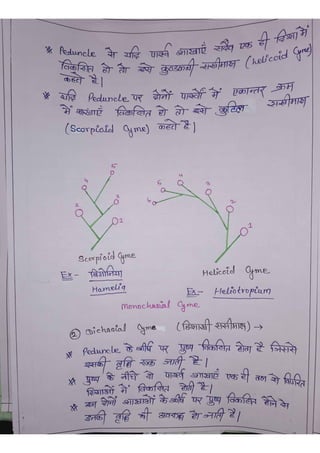 * Peduncle से यदि पार्श्व शाखाएँ सदैव एक ही दिशा में
विकसित हो तो इसे कुण्डलनी ससीमाक्ष (helicoid Cyme)
कहते है।
* यदि Peduncle पर दोनों पार्श्वों में एकान्तर क्रम
में शाखाएँ विकसित हो तो इसे कुटिल ससीमाक्ष
(Scorpioid Cyme) कहते है।
5
4
3
2
1
5
4
3
2
1
Scorpioid Cyme
Helicoid Cyme
Ex-
Hamelia
Ex- Heliotropium
Monochasial Cyme
② Dichasial Cyme (द्विशाखी ससीमाक्ष) →
* Peduncle के शीर्ष पर पुष्प विकसित होता है जिससे
इसकी वृद्धि रुक जाती है।
* पुष्प के नीचे से पार्श्व शाखाएँ एक ही से विपरित
दिशाओं में विकसित होती है।
* इन दोनों शाखाओं के शीर्ष पर पुष्प विकसित होने से
इनकी वृद्धि भी अवरुद्ध हो जाती है।